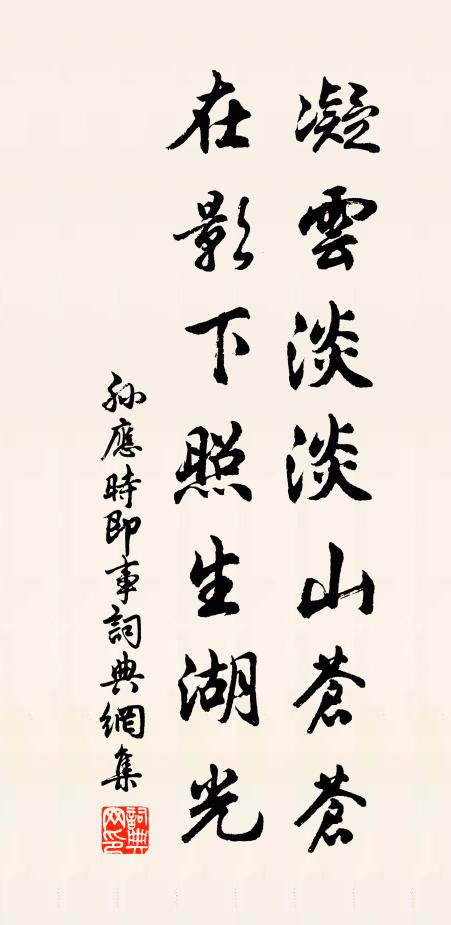 凝雲淡淡山蒼蒼
在影下照生湖光
孫應時即事詞典網集
詞典网印